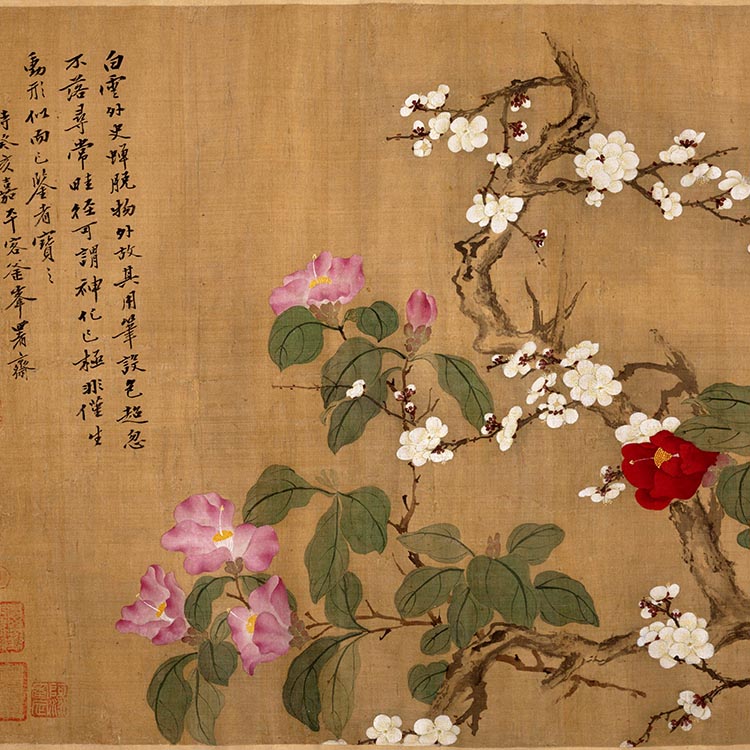 白雲外史蟬脫物外故其用筆設色超忽
不落尋常畦徑可謂神化已極非僅生
動形似而已鑒者寶之
時癸亥嘉平客釜峯署齋